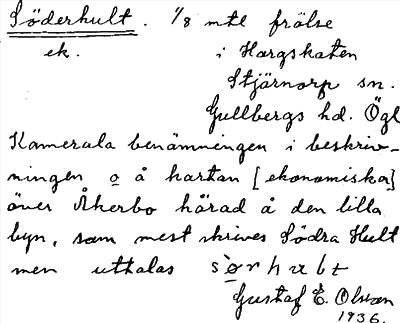 Söderhult. 1/8 mtl frälse
ek. i Hargskaten
Stjärnorp sn.
Gullbergs hd. Ögl
Kamerala benämningen i beskriv-
ningen o å kartan [ekonomiska]
över Åkerbo härad å den lilla
byn, som mest skrives Södra Hult
men uttalas
Gustaf E. Olsson
1936.